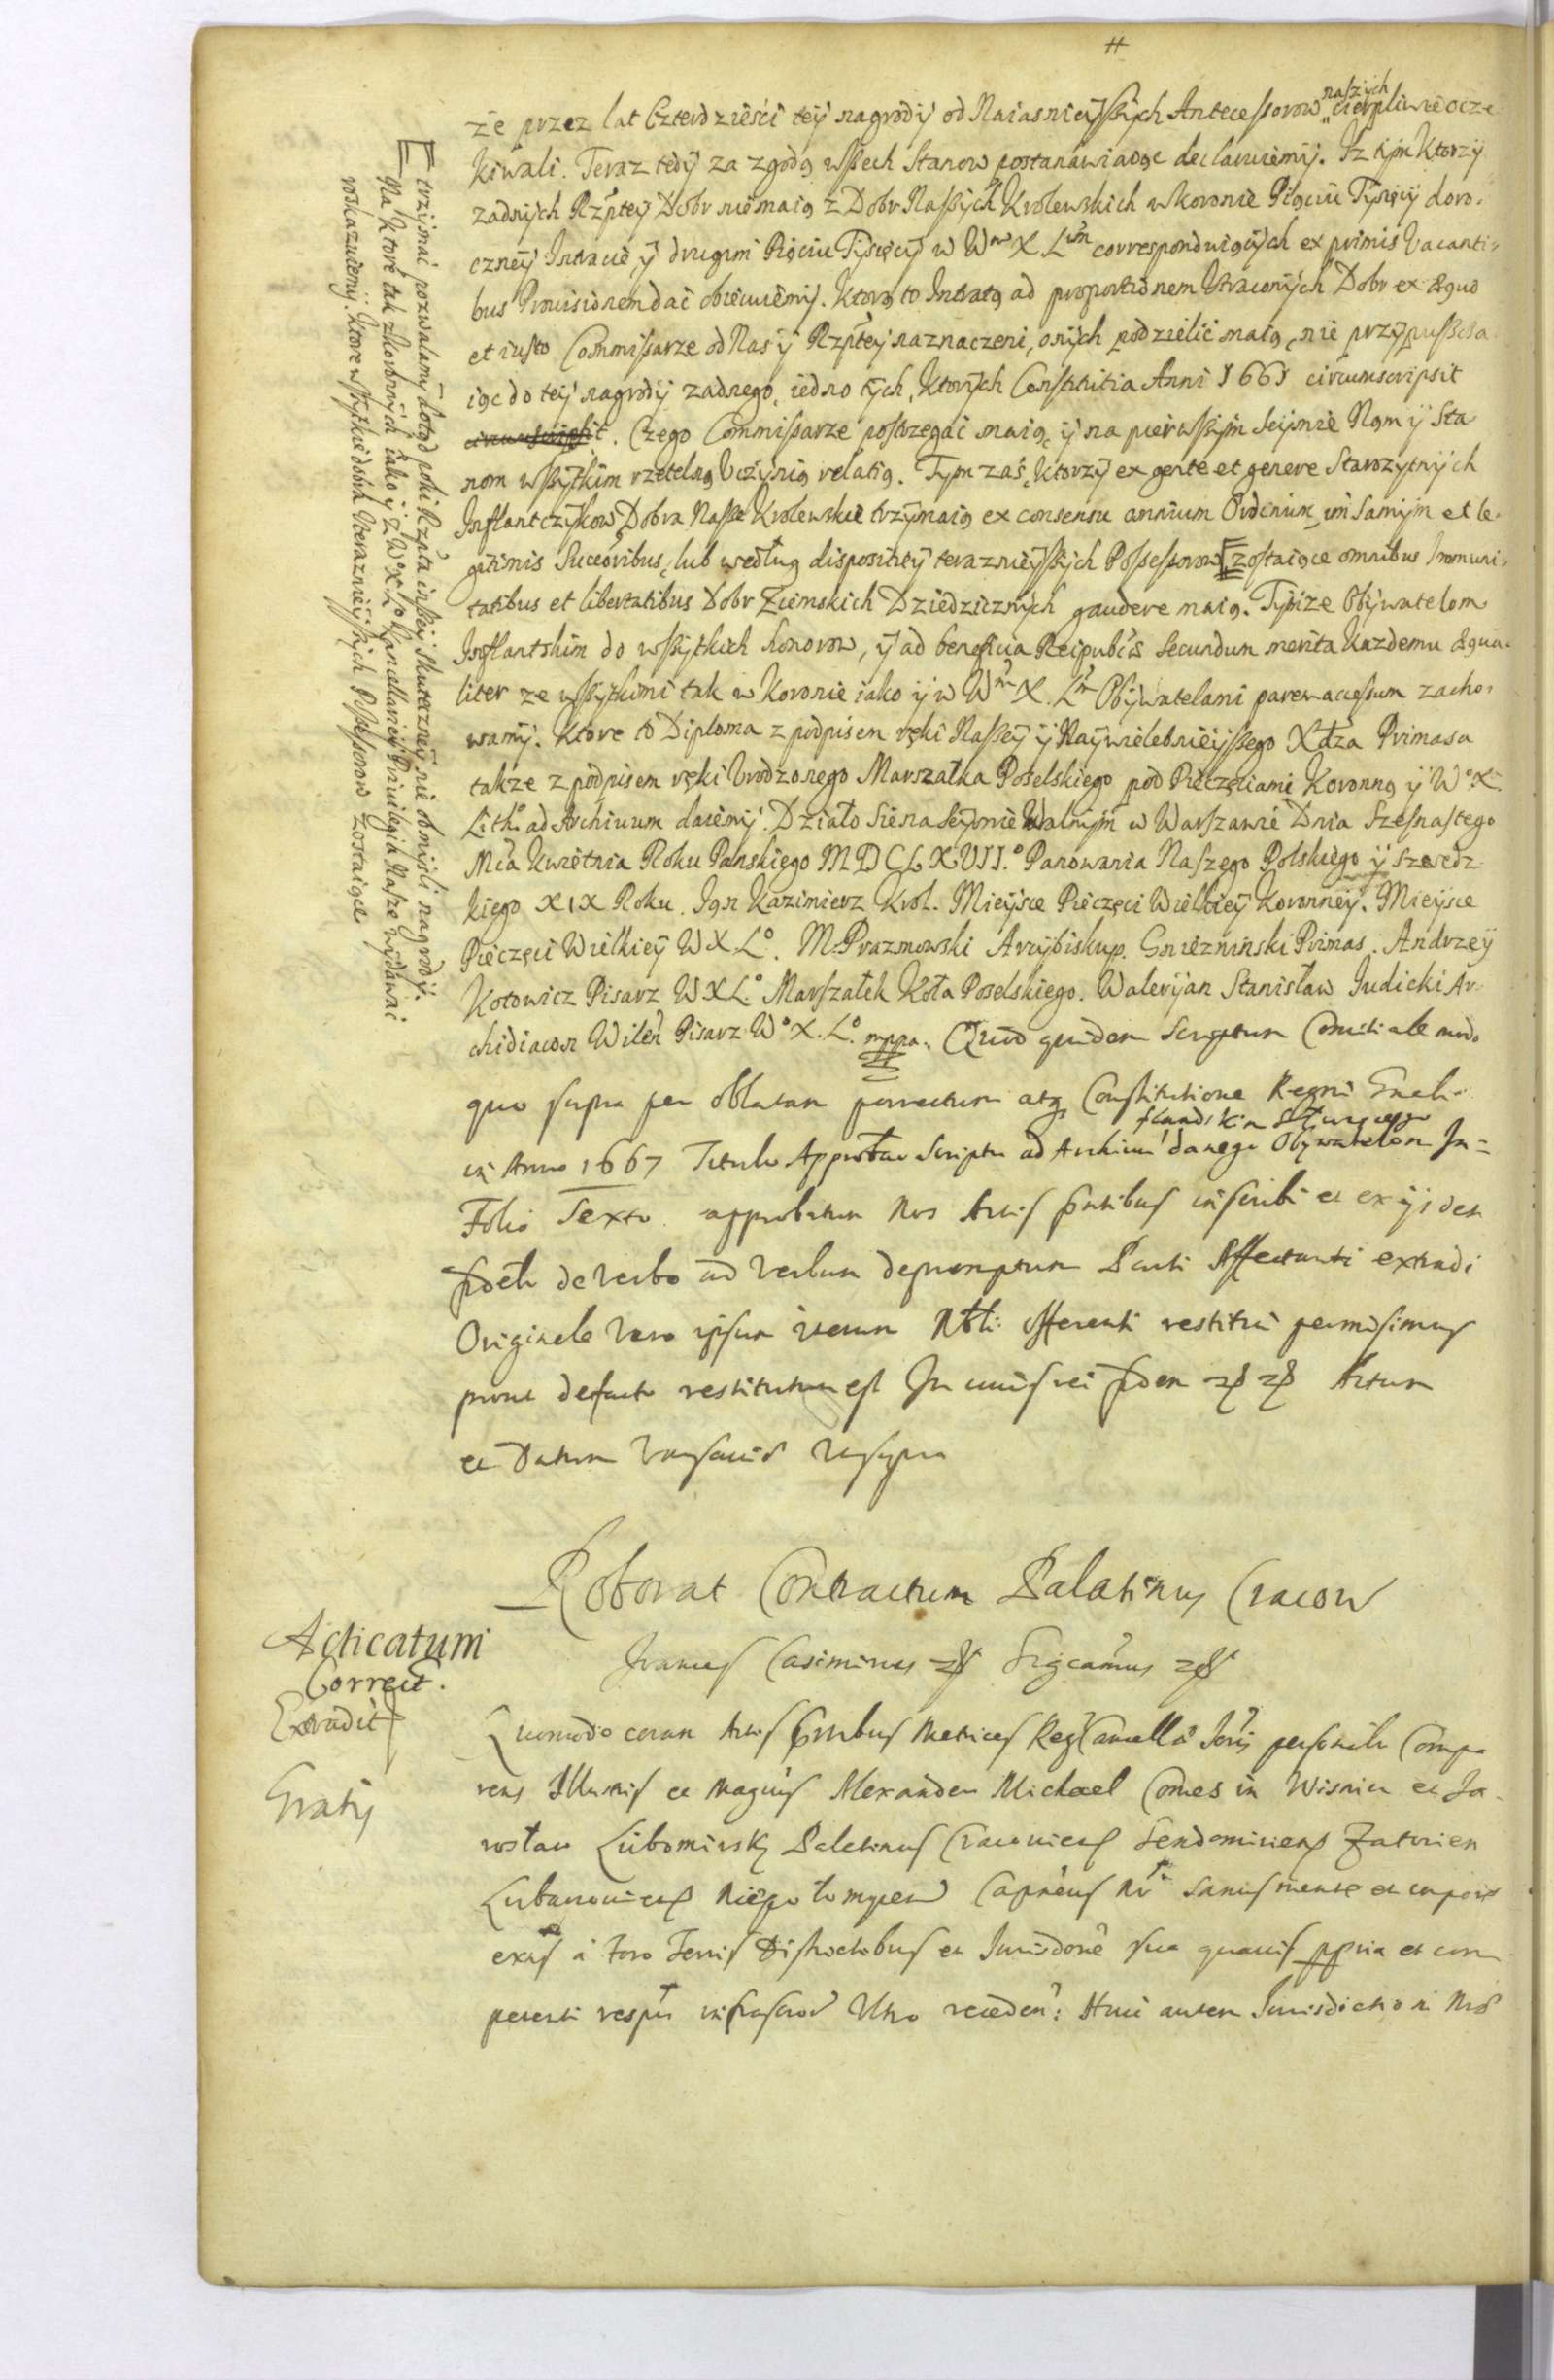 że przez lat Czterdzieści teÿ nagrodÿ od Naiasnieÿßÿch Antecessorow naszÿch cierpliwie ocze
kiwali. Teraz tedÿ za zgodą wßech Stanow postanawiaiąc declaruiemÿ. Iz tÿm Ktorzÿ
zadnÿch Rzpteÿ Dobr niemaią z Dobr Naßÿch Krolewskich w Koronie Pięciu Tÿsięcÿ doro-
czneÿ Intracie, ÿ drugim Pięciu Tÿsięcÿ w Wm X. Lm correspondenuiącÿch ex primis Vacanti-
bus Prouisionem dać obiecuiemÿ. Ktorą to Intratę ad proportionem Utraconÿch Dobr ex æquo
et iusto Commissarze od Nas ÿ Rzpteÿ naznaczeni, onÿch podzielić maią, nie przÿpuszcza
iąc do teÿ nagrodÿ zadnego, iedno tÿch, Ktorÿch Constitutia Anni 1661 circumscripsit
circumscripsit. Czego Commissarze postrzegać maią, ÿ na pierwßÿm Seÿmie Nam ÿ Sta
nom wßÿtkim rzetelną Uczÿnią relatią. Tÿm zaś, Ktorzÿ ex gente et genere Starozytnÿch
Inflantczÿkow, Dobra Naße Krolewskie trzÿmaią ex consensu omnium Ordinum, im samÿm et le-
gitimis Succoribus, lub według disposicieÿ teraznieÿßÿch Possessorow zostaiące omnibus Immuni-
tatibus et libertatibus Dobr Ziemskich Dziedzicznÿch gaudere maią. Tÿmze Obÿwatelom
Inflantskim do wßÿtkich honorow, ÿ ad beneficia Reipubcæ secundum merita Kazdemu æqua-
liter ze wßÿtkimi tak w Koronie iako ÿ w Wm X. Lm Obÿwatelami parem accessum zacho-
wamÿ. Ktore to Diploma z podpisem ręki Naßeÿ ÿ Naÿwielebnieÿßego Xdza Primasa
takze z podpisem ręki Urodzonego Marszałka Poselskiego pod Pieczęciami Koronną ÿ Wo X.
Litho ad Archiuum daiemÿ. Działo się na Seÿmie Walnÿm w Warszawie Dnia Szesnastego
Mca Kwietnia Roku Panskiego MDCLXVII.o Panowania Naszego Polskiego ÿ Szwedz
kiego XIX Roku. Jan Kazimierz Krol. Mieÿsce Pieczęci Wielkieÿ Koronneÿ. Mieÿsce
Pieczęci Wielkieÿ W X. Lo. M. Prazmowski Arcÿbiskup. Gniezninski Primas. Andrzeÿ
Kotowicz Pisarz W X L.o Marszałek Koła Poselskiego. Walerÿan Stanisław Judicki Ar-
chidiacon Wilen Pisarz Wo X. Lo. mppa. Quod quidem Scriptum Comitiale modo
quo supra per oblatam porrectum atq Constitutione Regni Gnali
in Anno 1667 Titulo Approbatio Scriptu ad Archiuu danego Obywatelom In-
flandskim
Folio Sexto approbatum Nos Actis pntibus inscribi et ex ijsdem
fideli de Verbo ad Verbum depromptum Parti Affectanti extradi
Originale Vero ipsum iterum Nbli Offerenti restitui permisimus
prout defacto restitutum est In cuius rei fidem Actum
et Datum Varsauiæ Ut supra
trzÿmać pozwalamÿ dotąd poki Rzpta inßeÿ skuteczneÿ nie obmÿśli nagrodÿ.
Na Ktore tak zkoronnÿch iako ÿ z Wo X. Lo Kancellarieÿ Priuilegia Nasze wÿdawać
roskazuiemÿ. Ktore wßÿtkie dobra Uteraznieÿßÿch Possessorow zostaiące
Roborat Contractum Palatinus Cracoviensis
Acticatum
Correct.
Extradit
Gratis
Joannes Casimirus Significamus
Quomodo coram Actis pntibus Metrices Regni Cancellae Joris personaliter Compa
rens Illustris et Magcus Alexander Michael Comes in Wisnicz et Ja-
rosław Lubomirsky Palatinus Cracouiens Sendomiriens Zatorien
Lubaczouiens Niepołomycen Capneus Nr Sanus mente et corpore
exns a Foro Terris Districtibus et Jurisdone sua quauis ppria et com
petenti respu infrascror Ultro recedens: Huic autem Jurisdictioni Næ